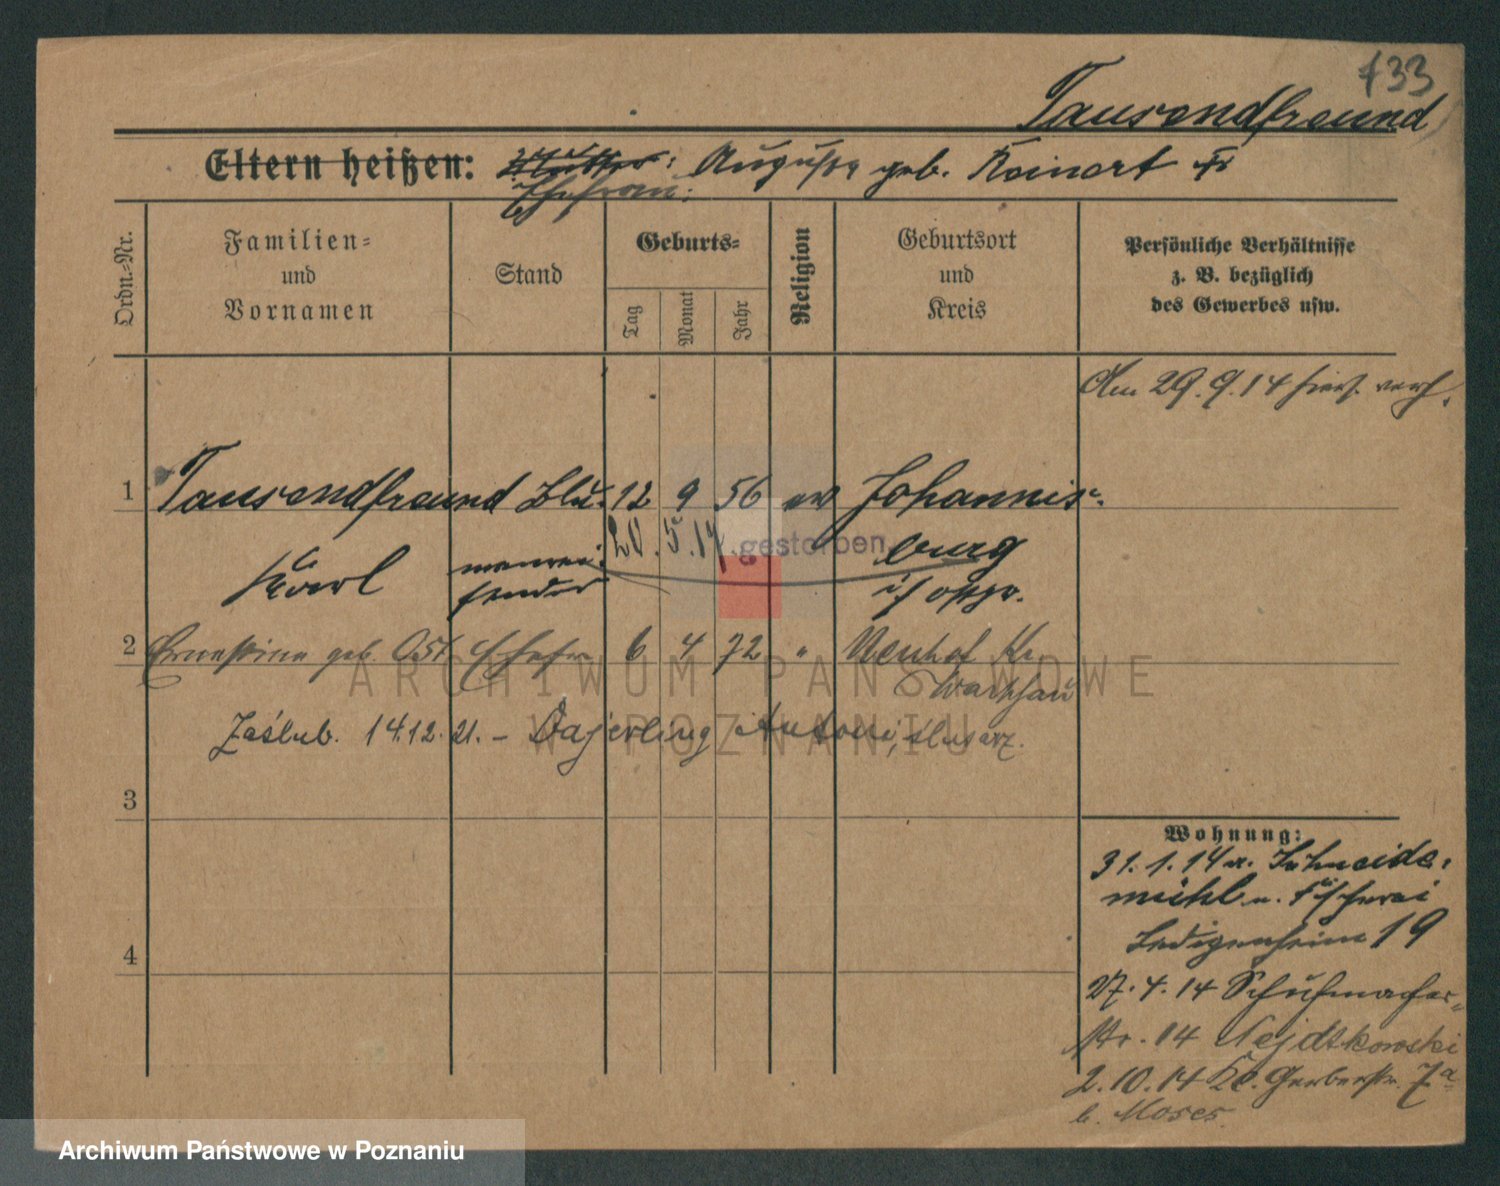 733
Tausendfreund
Eltern heißen: Mutter: Auguste geb. Reinert
Ehefrau:
Ordn.-Nr.
Familien-
und
Vornamen
Stand
Geburts-
Tag
Monat
Jahr
Religion
Geburtsort
und
Kreis
Persönliche Verhältnisse
z. B. bezüglich
des Gewerbes usw.
Am 29.9.14 hies. verh.
1 Tausendfreund 12 9 56 ev Johannis-
20.5.17. gestorben burg
Karl i/ Ostpr.
2 Ernestine geb. Ost Ehefr 6 4 72 " Neuhof Kr.
Zaślub. 14.12.21. – Dajerling Antoni, ślusarz.
3
4
Wohnung:
31.1.14 v. Schneide-
mühl n. Fischerei
Ledigenheim 19
27.4.14 Schuhmacher-
Str. 14 Nejdtkowski
2.10.14 Kl. Gerberstr. 7a
b. Moses.
ARCHIWUM PAŃSTWOWE
W POZNANIU
Archiwum Państwowe w Poznaniu